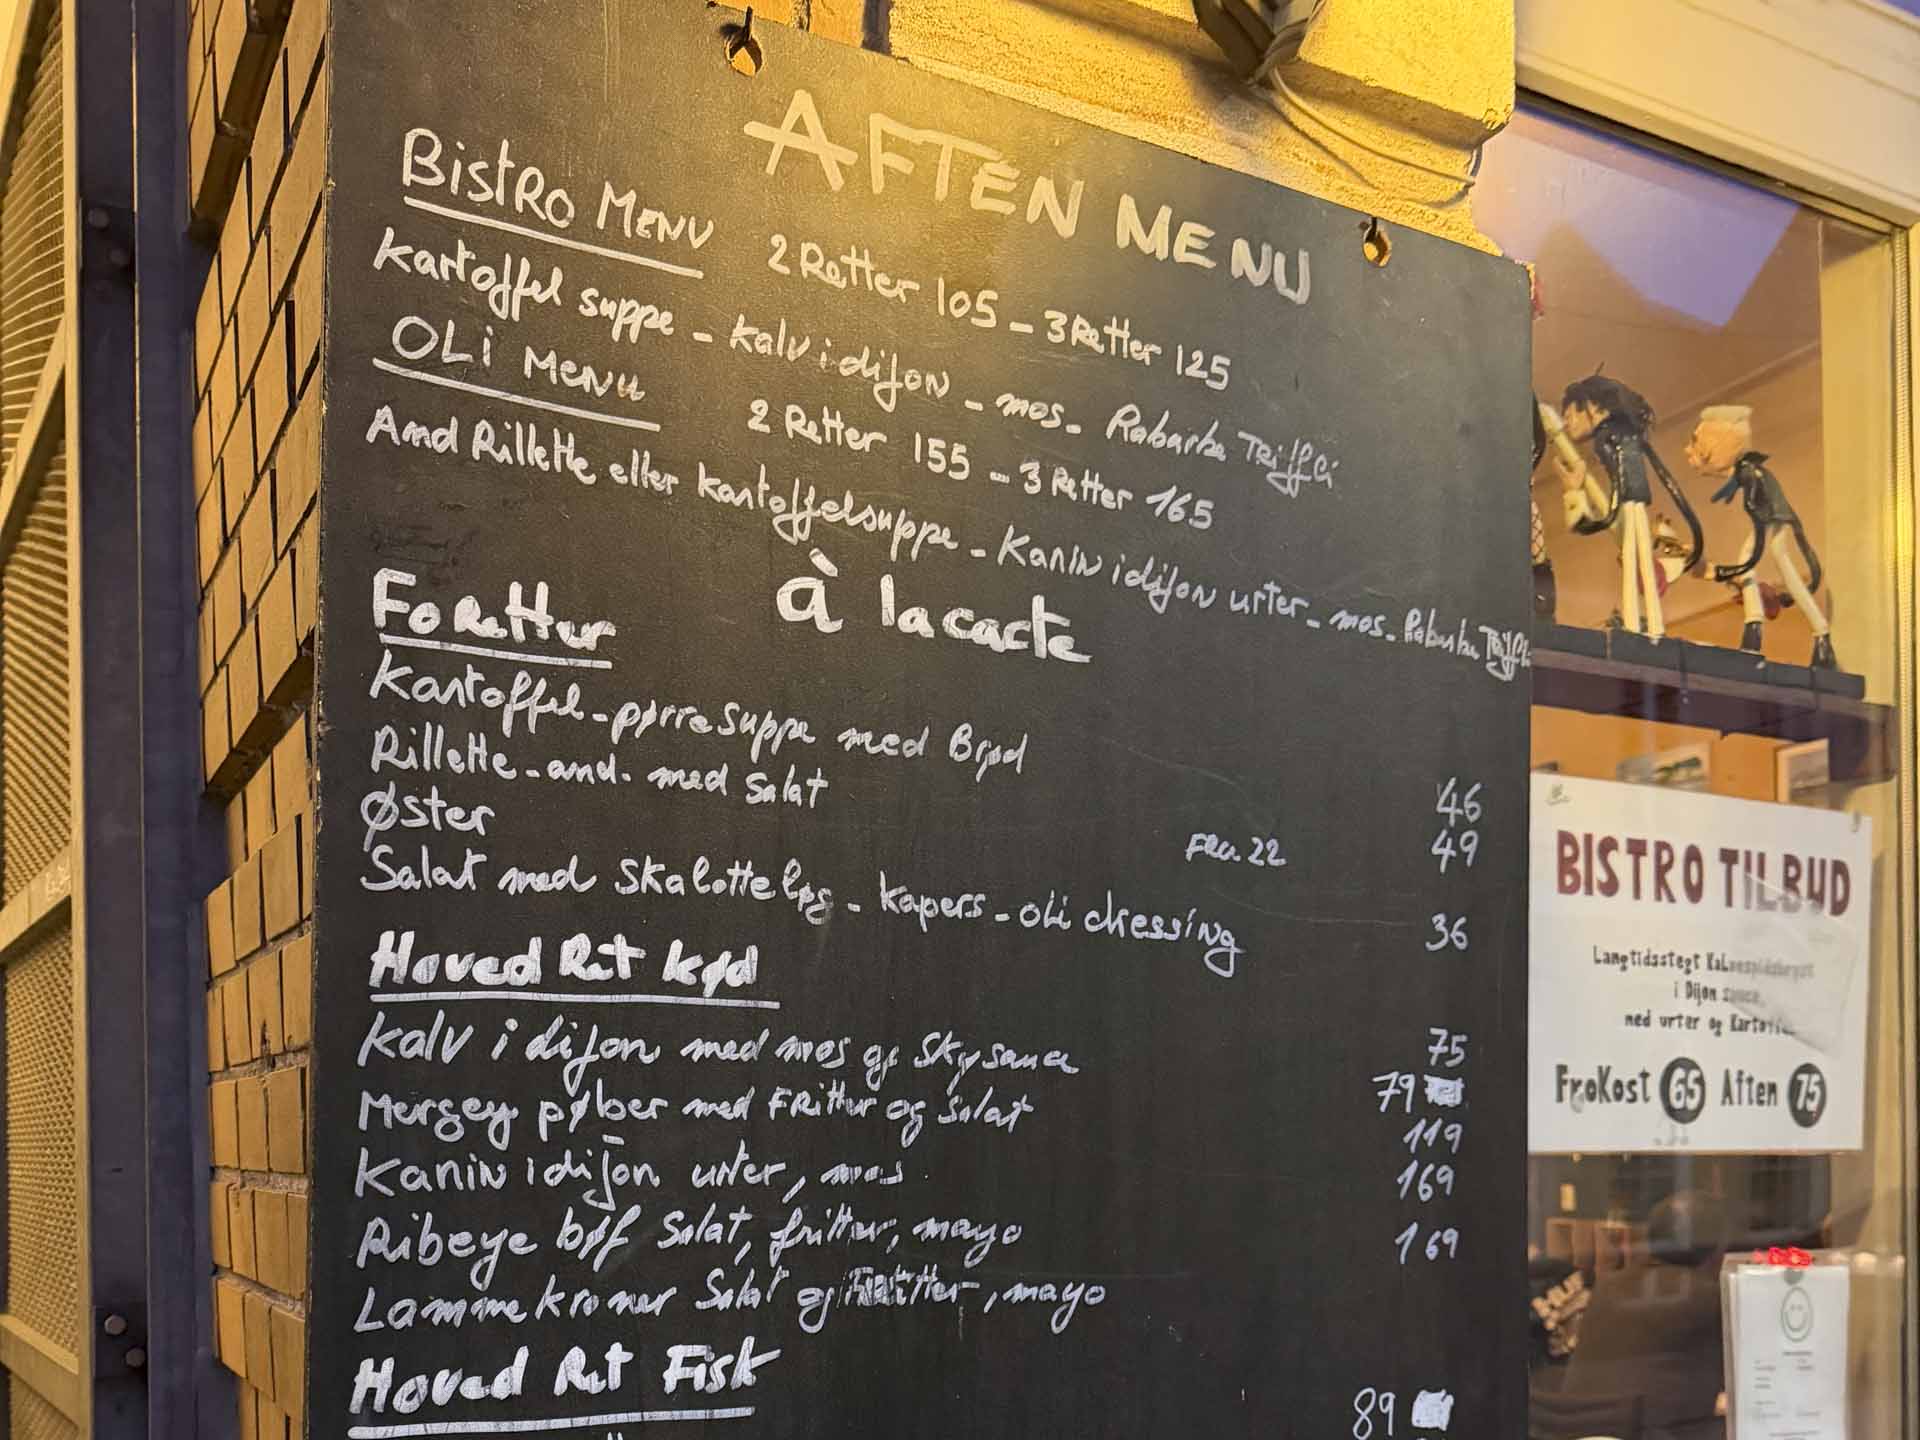 AFTEN MENU
BistRo MENU 2 Retter 105 - 3 Retter 125
Kartoffel suppe - Kalv i dijon - mos - Rabarbe Triffli
OLi MENU 2 Retter 155 - 3 Retter 165
And Rillette eller kartoffelsuppe - Kanin i dijon urter - mos - Rabarbe
à la carte
FoRetter
Kartoffel - pørresuppe med Brød 46
Rillette - and. med Salat 49
Øster FRA. 22
Salat med Skalotteløg - Kapers - oLi dressing 36
Hoved Ret kød
Kalv i dijon med mos og Skysauce 75
Mergez pølser med FRitter og Salat 79
Kanin i dijon urter, mos 119
Ribeye bøf Salat, fritter, mayo 169
Lammekroner Salat og Fritter, mayo 169
Hoved Ret Fisk
89
BISTRO TILBUD
Langtidsstegt
i Dijon sauce,
med urter og
FroKost 65 Aften 75